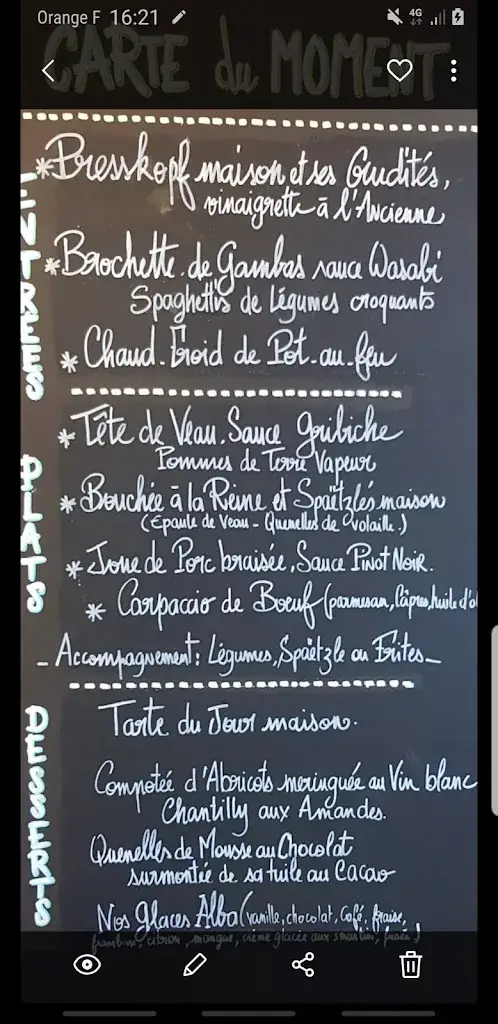 Orange F 16:21 4G
CARTE du MOMENT
ENTREES
*Presskopf maison et ses Crudités,
vinaigrette à l'Ancienne
*Brochette de Gambas sauce Wasabi
Spaghettis de Légumes croquants
* Chaud-Froid de Pot-au-feu
PLATS
* Tête de Veau, Sauce gribiche
Pommes de Terre Vapeur
* Bouchée à la Reine et Spaëtzlés maison
(Epaule de Veau - Quenelles de volaille.)
* Joue de Porc braisée, Sauce Pinot Noir.
* Carpaccio de Boeuf (parmesan, Câpres, huile d'ol
- Accompagnement: Légumes, Spaëtzle ou Frites -
DESSERTS
Tarte du Jour maison.
Compotée d'Abricots meringuée au Vin blanc
Chantilly aux Amandes.
Quenelles de Mousse au Chocolat
surmontée de sa tuile au Cacao
Nos Glaces Alba (vanille, chocolat, Café, fraise,
framboise, citron, mangue, crème glacée aux smarties,